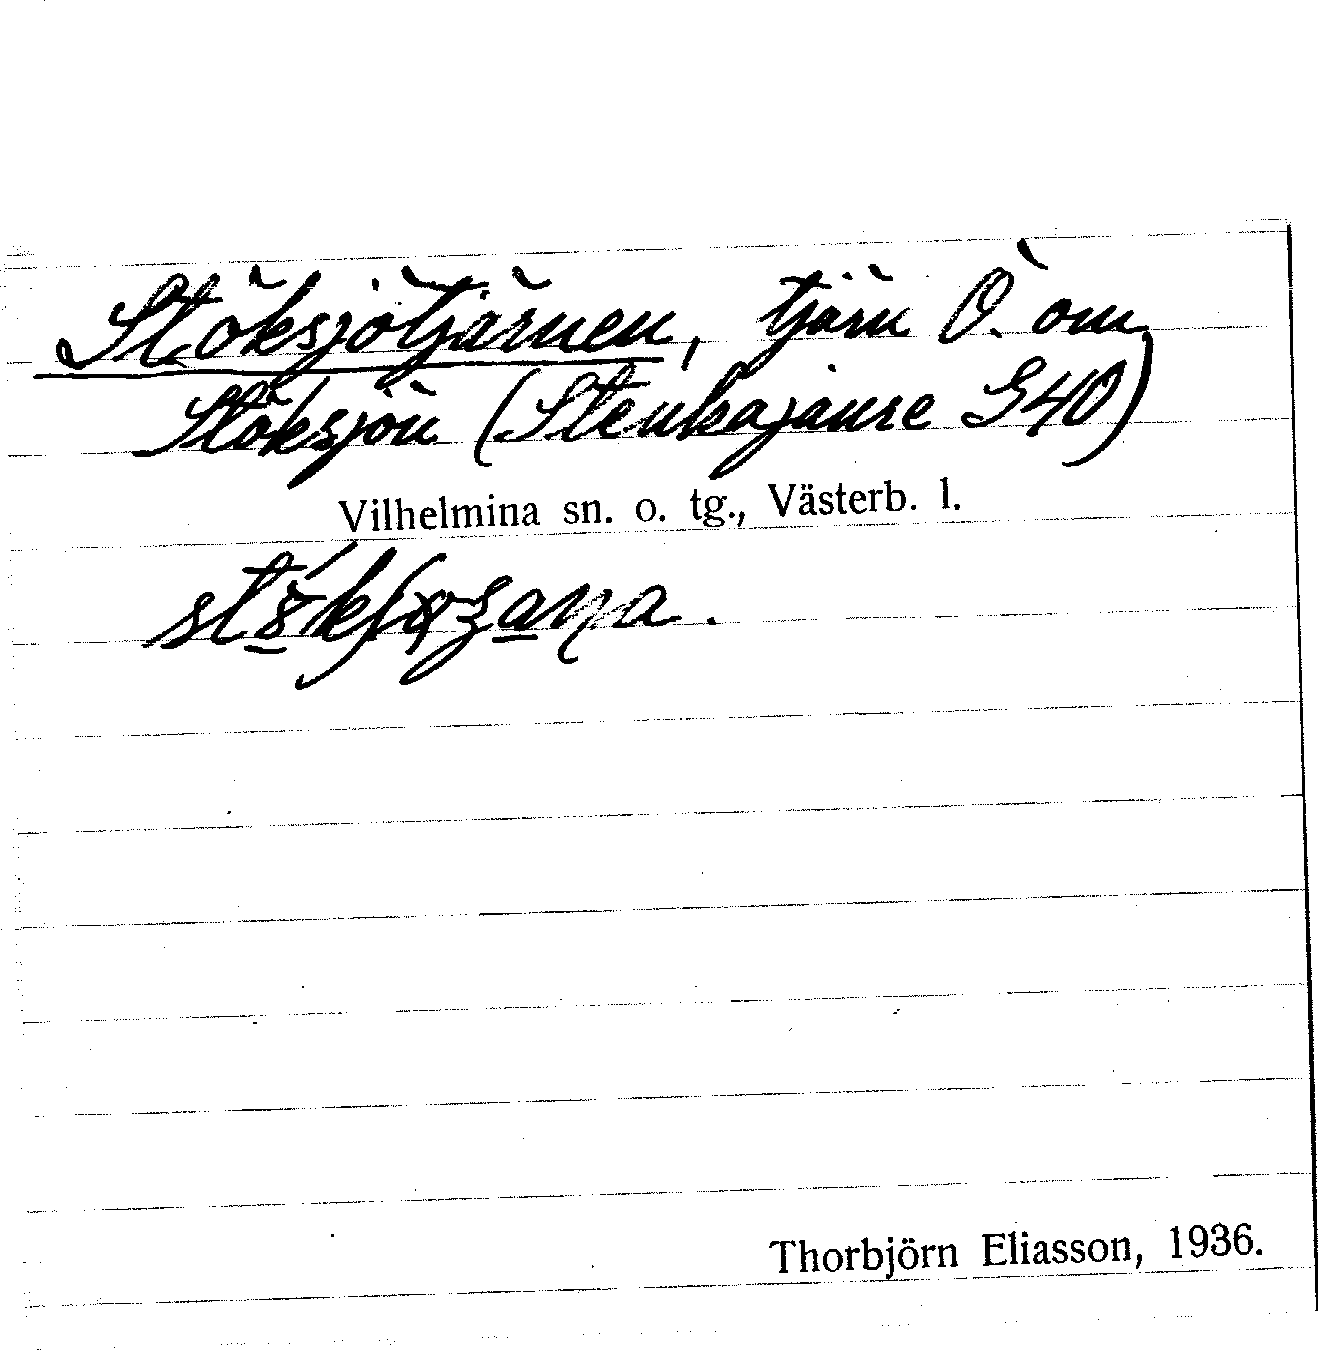 Stöksjötjärnen, tjärn Ö. om
Stöksjön (Stenkajaure G40)
Vilhelmina sn. o. tg., Västerb. l.
Thorbjörn Eliasson, 1936.